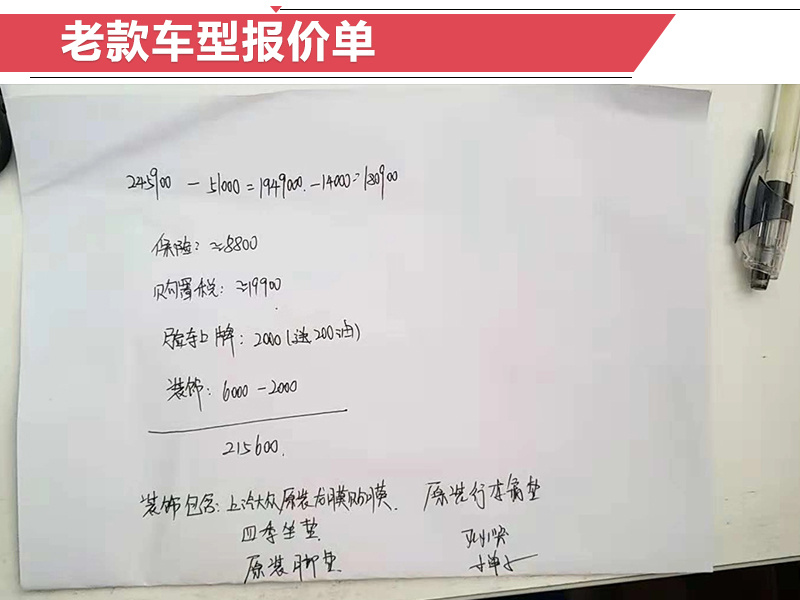 老款车型报价单
245900 - 51000 = 1949000. - 14000 = 180900
保险: ≈8800
购置税: ≈19900
验车上牌: 2000 (送200油)
装饰: 6000 - 2000
215600.
装饰包含: 上汽大众原装龙膜贴膜. 原装行李箱垫
四季坐垫
原装脚垫